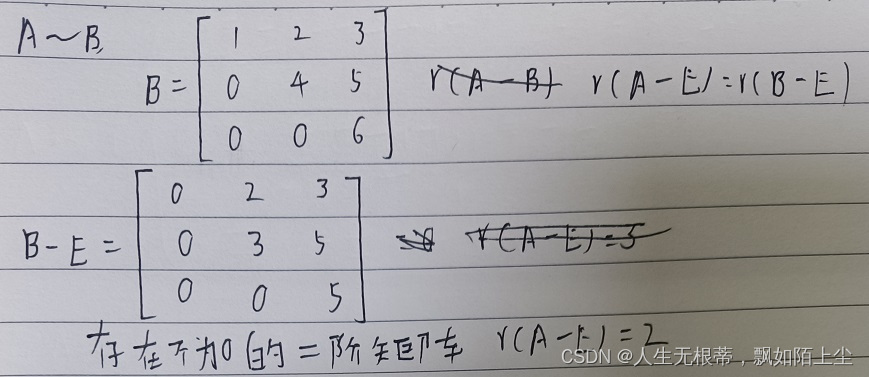 A~B,
B = [ 1 2 3
0 4 5
0 0 6 ] r(A-B) r(A-E)=r(B-E)
B-E = [ 0 2 3
0 3 5
0 0 5 ] r(A-E)=3
存在不为0的二阶矩阵 r(A-E)=2
CSDN @人生无根蒂,飘如陌上尘